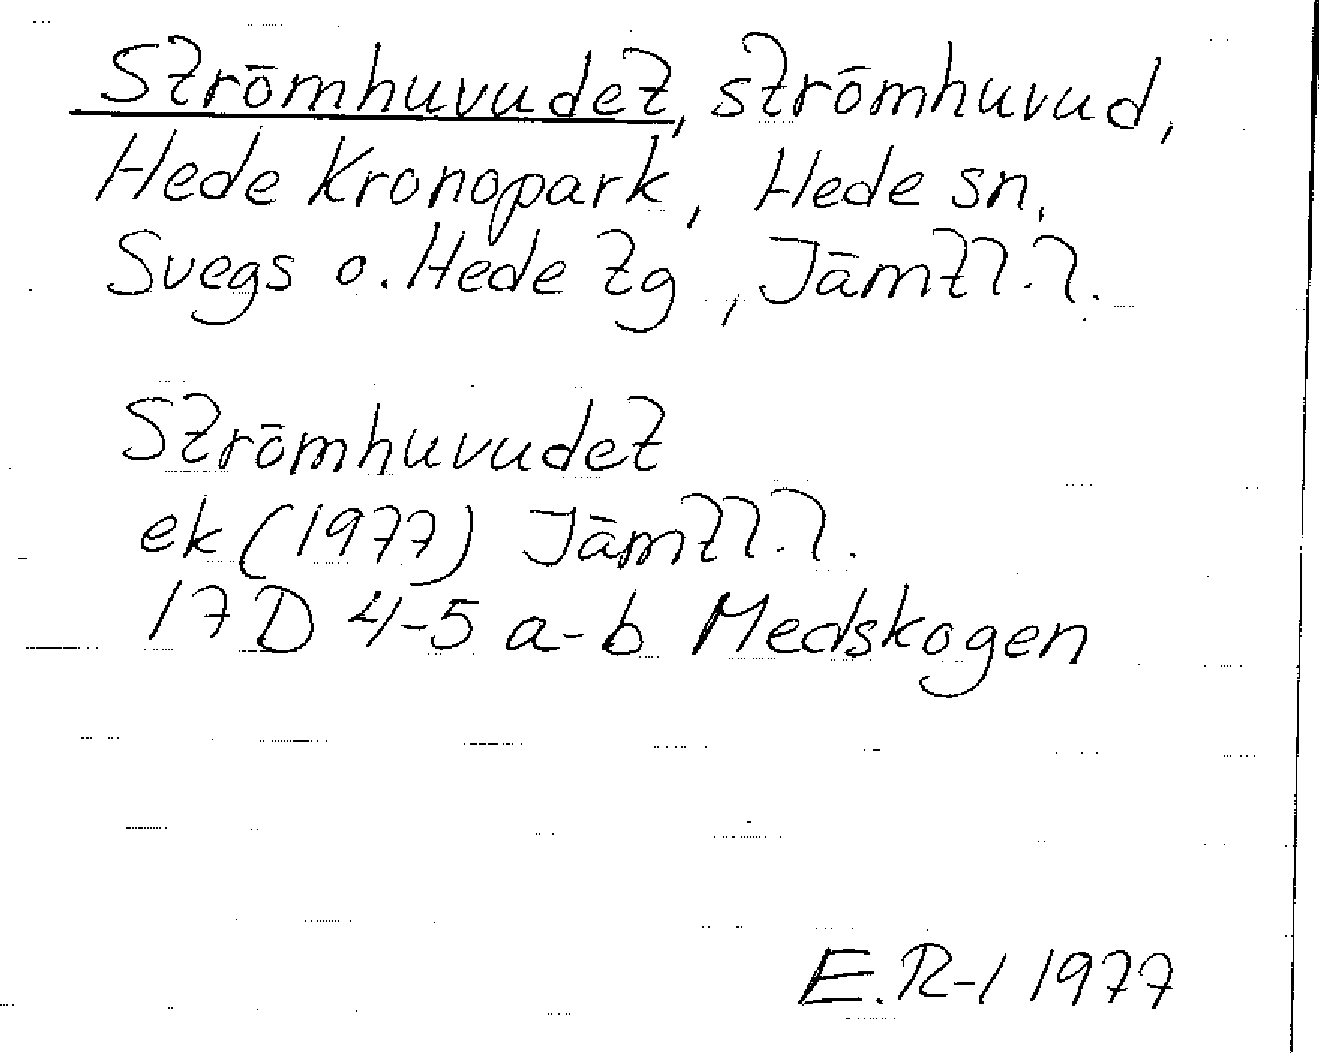 Strömhuvudet, strömhuvud,
Hede Kronopark, Hede sn,
Svegs o. Hede tg, Jämtl.l.
Strömhuvudet
ek (1977) Jämtl.l.
17D 4-5 a-b Medskogen
E.R-l 1977